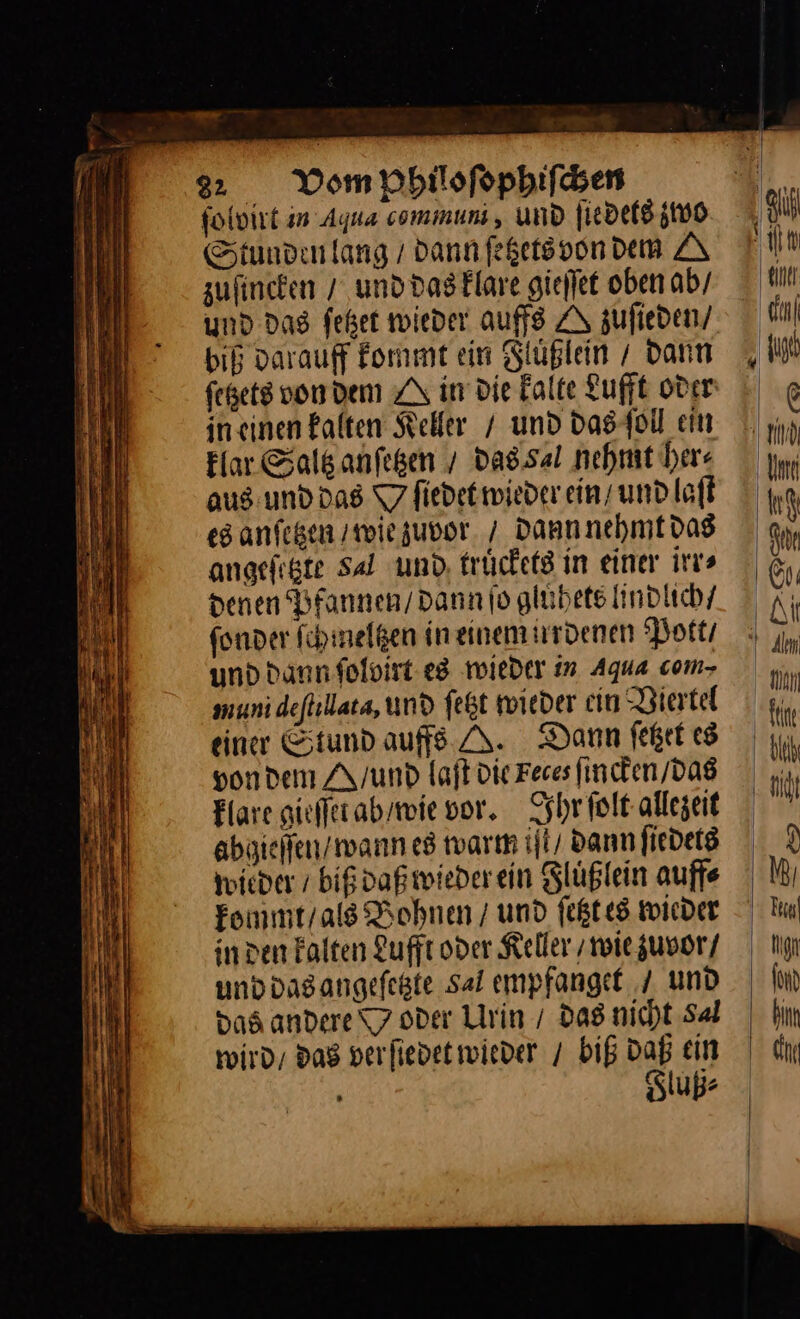 82 Vom Philoſophiſchen
ſolvirt in Aqua communi, und ſiedets zwo
Stunden lang / dann ſetzets von dem 🜂
zuſincken / und das klare gieſſet oben ab/
und das ſetzet wieder auffs 🜂 zuſieden/
biß darauff kommt ein Flüßlein / dann
ſetzets von dem 🜂 in die kalte Lufft oder
in einen kalten Keller / und das ſoll ein
klar Saltz anſetzen / das Sal nehmt her⸗
aus und das 🜄 ſiedet wieder ein / und laſt
es anſetzen / wie zuvor / dann nehmt das
angeſetzte Sal und trückets in einer irr⸗
denen Pfannen / dann ſo glühets lindlich /
ſonder ſchmeltzen in einem irrdenen Pott /
und dann ſolvirt es wieder in Aqua com-
muni deſtillata, und ſetzt wieder ein Viertel
einer Stund auffs 🜂. Dann ſetzet es
von dem 🜂 / und laſt die Feces ſincken / das
klare gieſſet ab / wie vor. Ihr ſolt allezeit
abgieſſen / wann es warm iſt / dann ſiedets
wieder / biß daß wieder ein Flüßlein auff⸗
kommt / als Bohnen / und ſetzt es wieder
in den kalten Lufft oder Keller / wie zuvor /
und das angeſetzte Sal empfanget / und
das andere 🜄 oder Urin / das nicht Sal
wird / das verſiedet wieder / biß daß ein
Fluß⸗